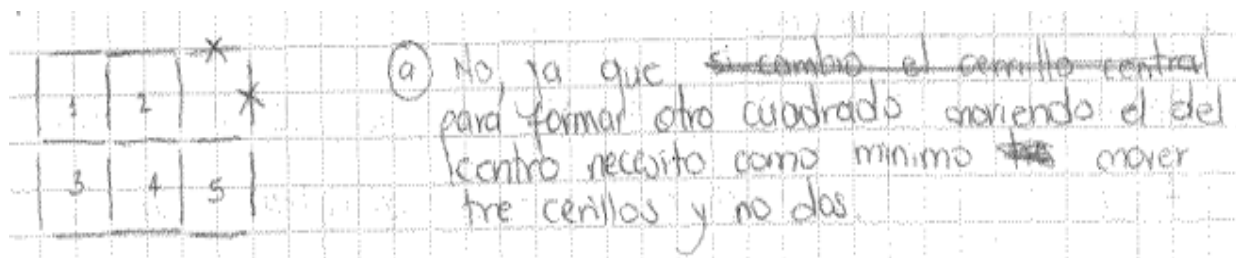 1 2
3 4 5
a No, ya que si cambio el cerrillo central
para formar otro cuadrado moviendo el del
centro necesito como minimo mover
tre cerillos y no dos